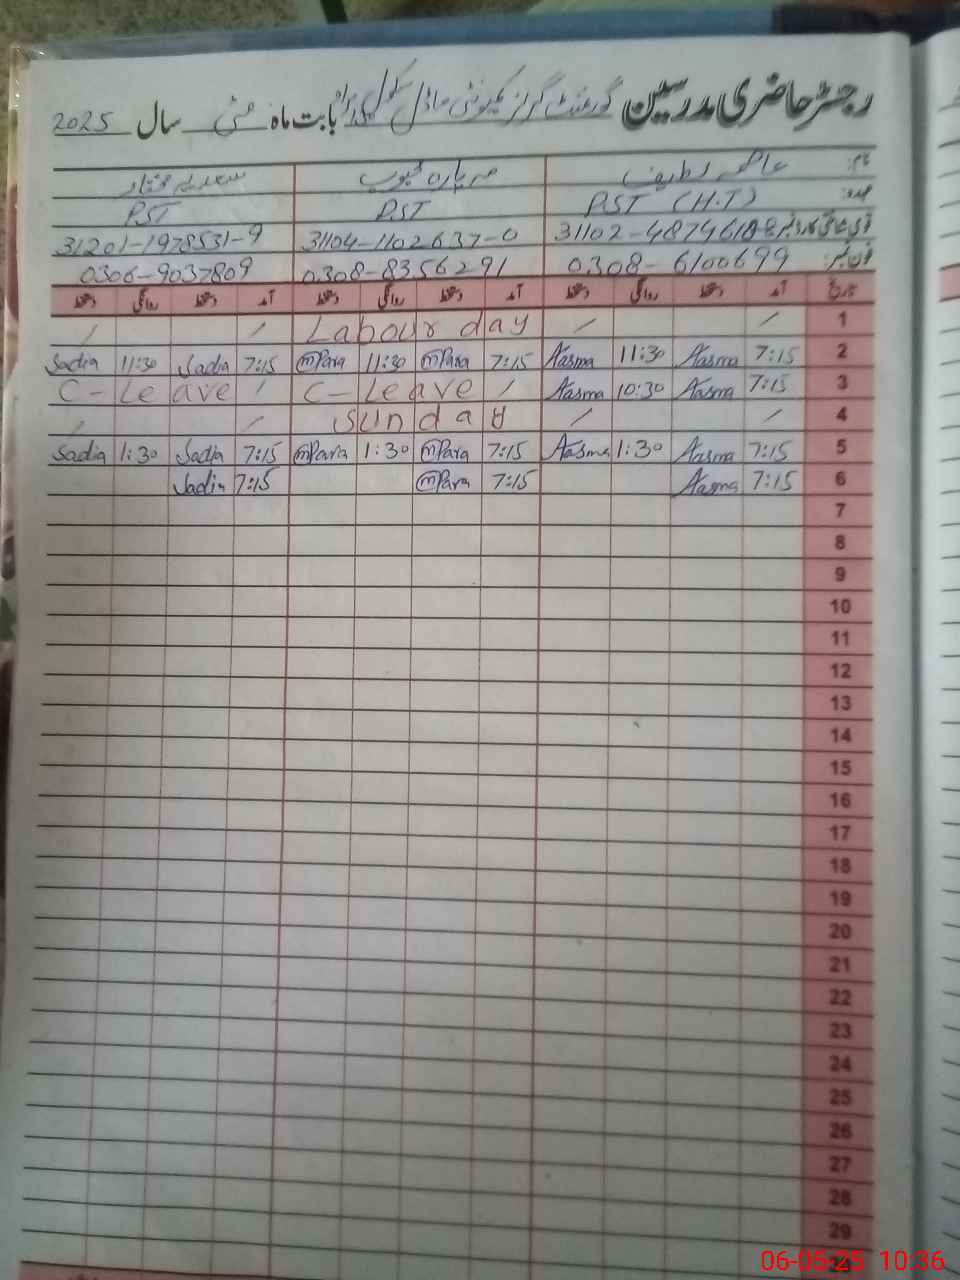 رجسٹر حاضری مدرسین گورنمنٹ گرلز کمیونٹی ماڈل سکول بابت ماہ مئی سال 2025
نام: عاصمہ لطیف مہ پارہ محبوب سعدیہ مختار
عہدہ: PST (H.T) PST PST
قومی شناختی کارڈ نمبر 31102-4874618-8 31104-1102637-0 31201-1978531-9
فون نمبر: 0308-6100699 0308-8356291 0306-9037809
تاریخ آمد دستخط روانگی دستخط آمد دستخط روانگی دستخط آمد دستخط روانگی دستخط
1 / / Labour day / /
2 7:15 Aasma 11:30 Aasma 7:15 mPara 11:30 mPara 7:15 Sadia 11:30 Sadia
3 7:15 Aasma 10:30 Aasma / C-Leave / C-Leave
4 / / Sunday / /
5 7:15 Aasma 1:30 Aasma 7:15 mPara 1:30 mPara 7:15 Sadia 1:30 Sadia
6 7:15 Aasma 7:15 mPara 7:15 Sadia
7
8
9
10
11
12
13
14
15
16
17
18
19
20
21
22
23
24
25
26
27
28
29
06-05-25 10:36